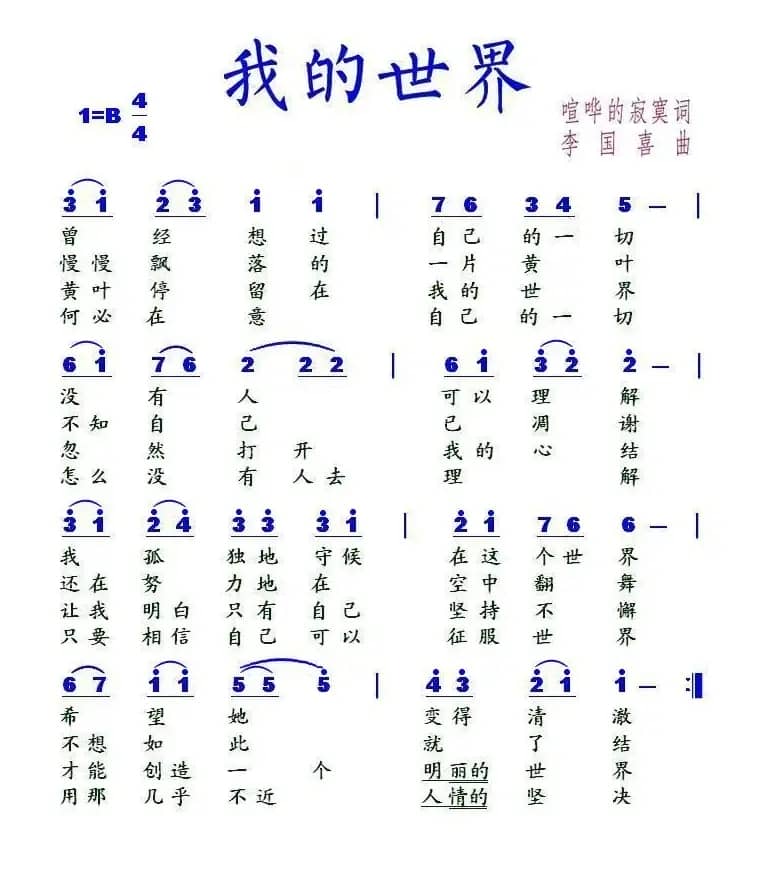 我的世界
1=B 4/4
喧哗的寂寞词
李国喜曲
3̇ 1̇ 2̇ 3̇ 1̇ 1̇ | 7 6 3 4 5 — |
曾经想过 自己的一切
慢慢飘落的 一片黄叶
黄叶停留在 我的世界
何必在意 自己的一切
6 1̇ 7 6 2 2 2 | 6 1̇ 3̇ 2̇ 2̇ — |
没有人 可以理解
不知自己 已凋谢
忽然打开 我的心结
怎么没有人去 理解
3̇ 1̇ 2̇ 4̇ 3̇ 3̇ 3̇ 1̇ | 2̇ 1̇ 7 6 6 — |
我孤独地守候 在这个世界
还在努力地在 空中翻舞
让我明白只有自己 坚持不懈
只要相信自己可以 征服世界
6 7 1̇ 1̇ 5 5 5̇ | 4̇ 3̇ 2̇ 1̇ 1̇ — :‖
希望她 变得清澈
不想如此 就了结
才能创造一个 明丽的世界
用那几乎不近 人情的坚决